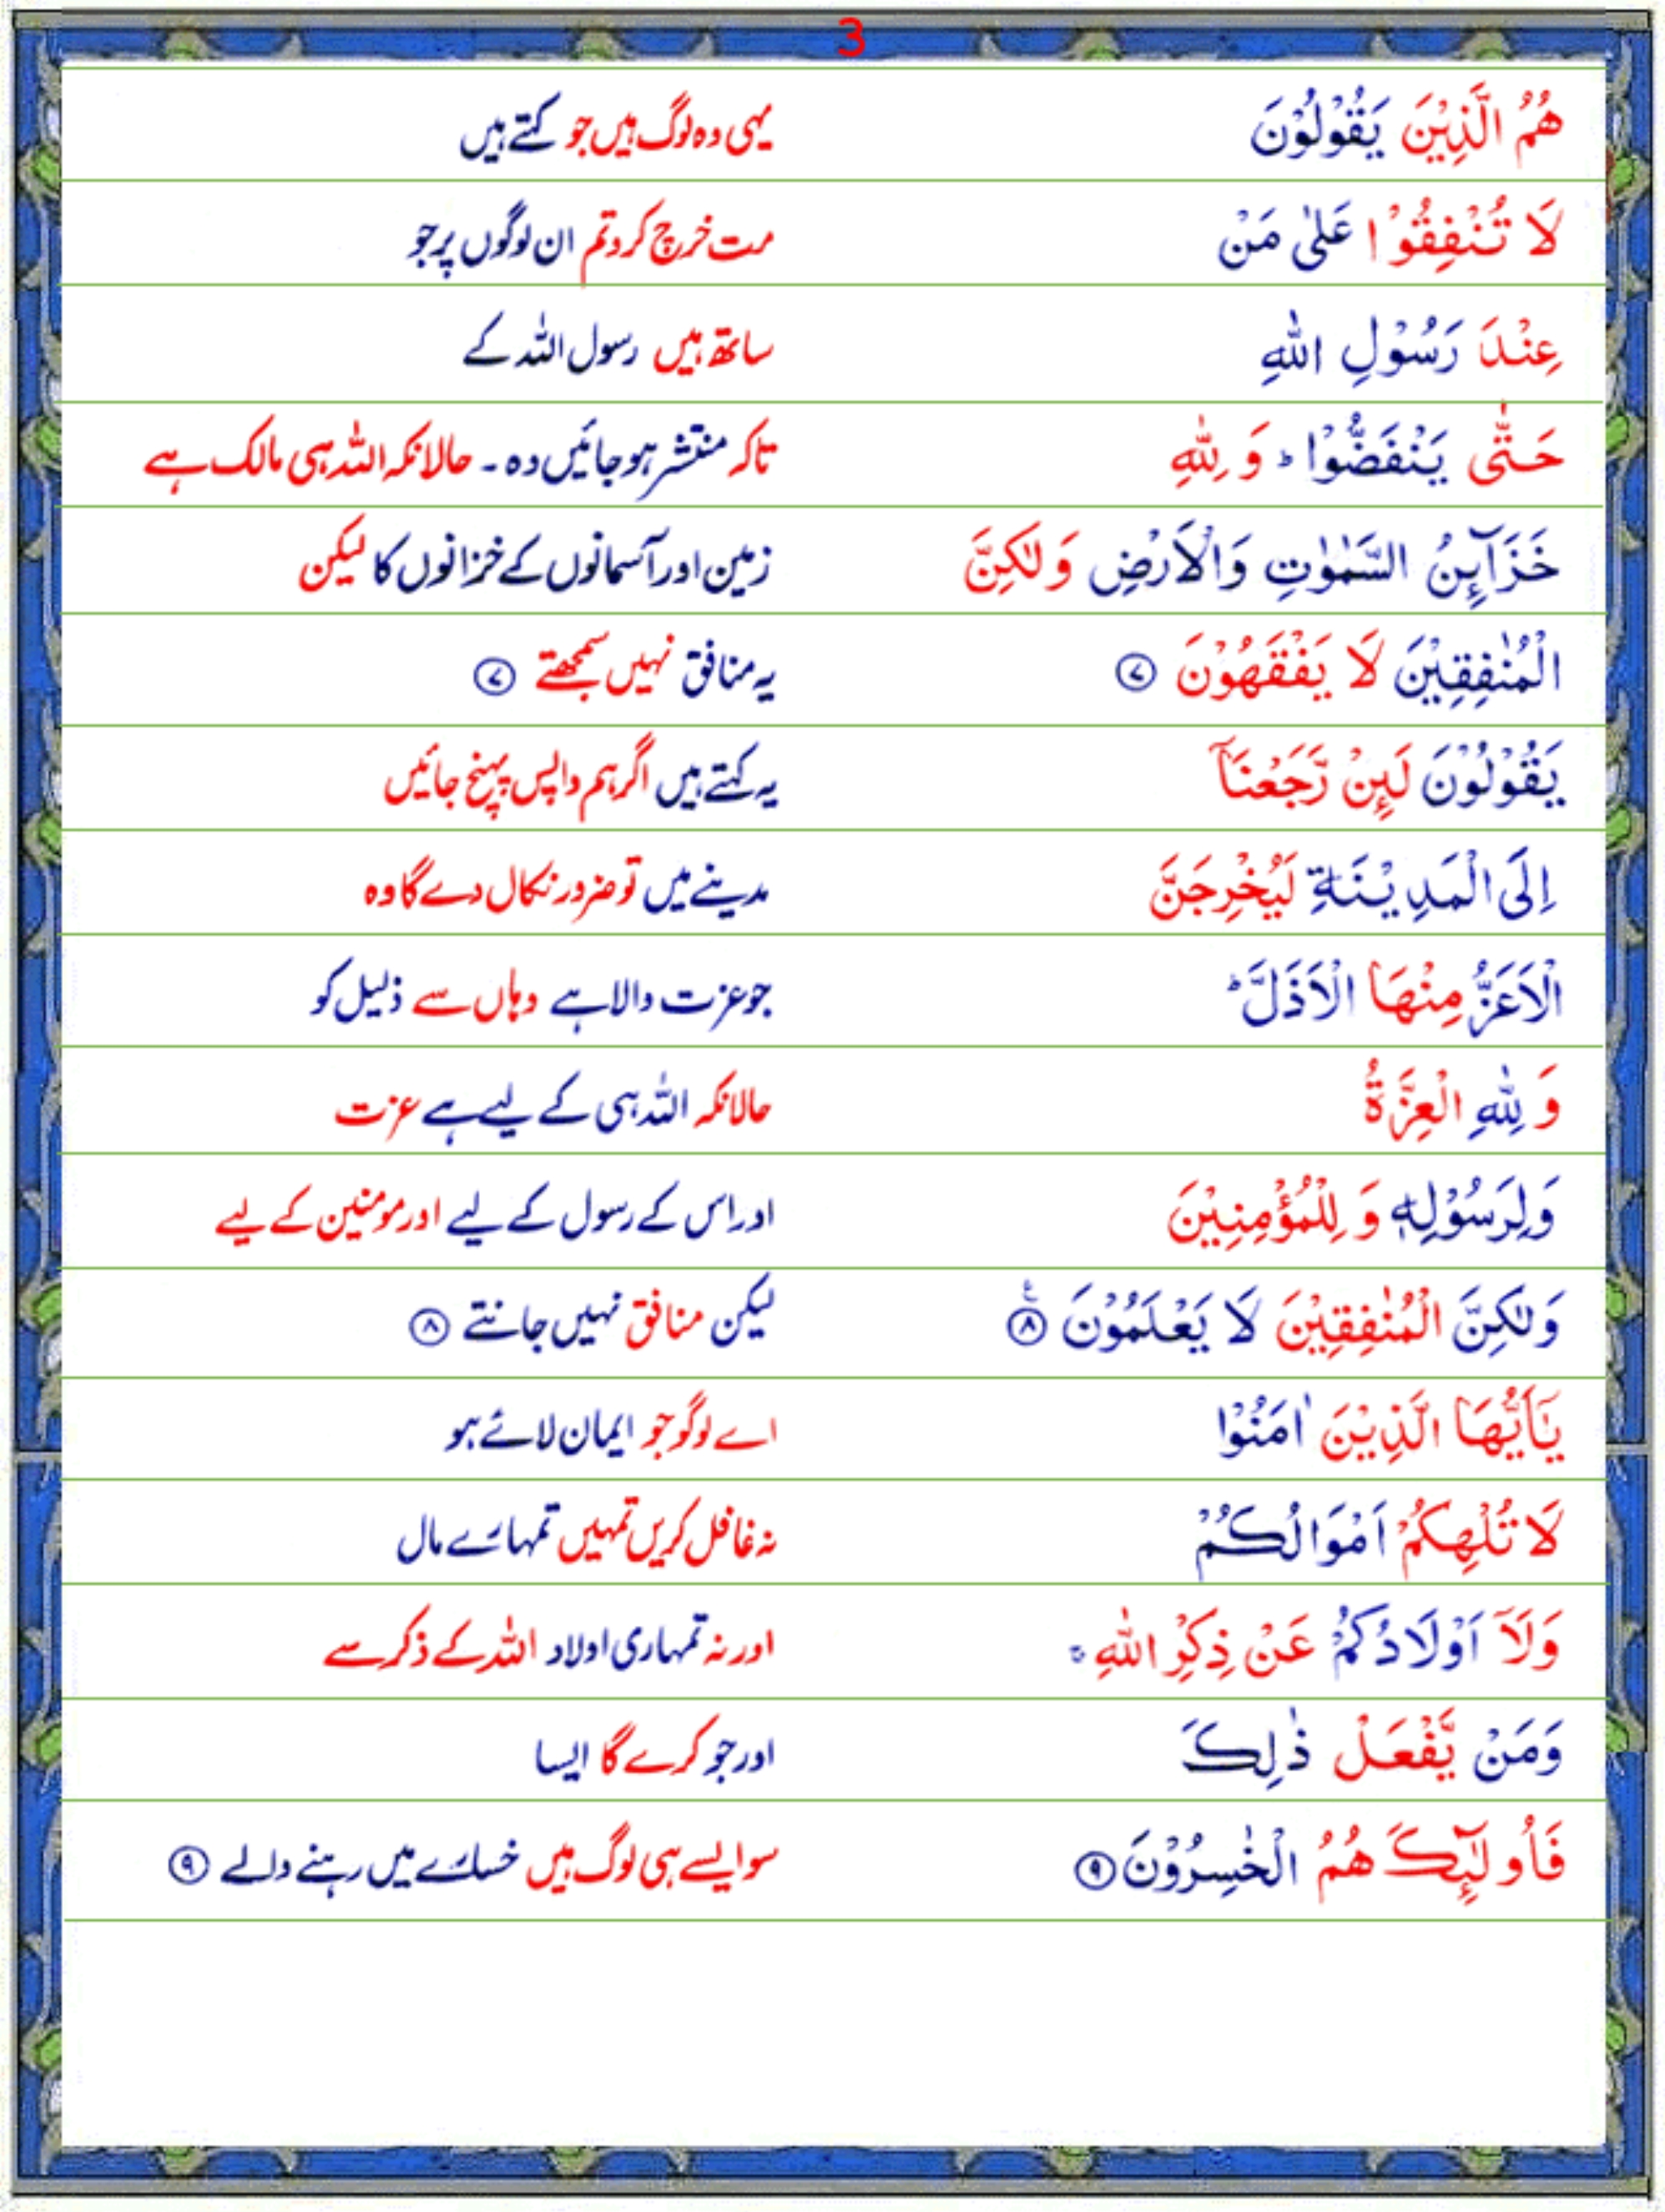 3
هُمُ الَّذِيْنَ يَقُوْلُوْنَ یہی وہ لوگ ہیں جو کہتے ہیں
لَا تُنْفِقُوْا عَلٰى مَنْ مت خرچ کرو تم ان لوگوں پر جو
عِنْدَ رَسُوْلِ اللّٰهِ ساتھ ہیں رسول اللہ کے
حَتّٰى يَنْفَضُّوْا ؕ وَ لِلّٰهِ تاکہ منتشر ہو جائیں وہ ۔ حالانکہ اللہ ہی مالک ہے
خَزَآىِٕنُ السَّمٰوٰتِ وَالْاَرْضِ وَلٰكِنَّ زمین اور آسمانوں کے خزانوں کا لیکن
الْمُنٰفِقِيْنَ لَا يَفْقَهُوْنَ ۷ یہ منافق نہیں سمجھتے ۷
يَقُوْلُوْنَ لَىِٕنْ رَّجَعْنَاۤ یہ کہتے ہیں اگر ہم واپس پہنچ جائیں
اِلَى الْمَدِيْنَةِ لَيُخْرِجَنَّ مدینے میں تو ضرور نکال دے گا وہ
الْاَعَزُّ مِنْهَا الْاَذَلَّ ؕ جو عزت والا ہے وہاں سے ذلیل کو
وَ لِلّٰهِ الْعِزَّةُ حالانکہ اللہ ہی کے لیے ہے عزت
وَلِرَسُوْلِهٖ وَ لِلْمُؤْمِنِيْنَ اور اس کے رسول کے لیے اور مومنین کے لیے
وَلٰكِنَّ الْمُنٰفِقِيْنَ لَا يَعْلَمُوْنَ ۸ ع لیکن منافق نہیں جانتے ۸
يٰۤاَيُّهَا الَّذِيْنَ اٰمَنُوْا اے لوگو جو ایمان لائے ہو
لَا تُلْهِكُمْ اَمْوَالُكُمْ نہ غافل کریں تمہیں تمہارے مال
وَلَاۤ اَوْلَادُكُمْ عَنْ ذِكْرِ اللّٰهِ ۚ اور نہ تمہاری اولاد اللہ کے ذکر سے
وَمَنْ يَّفْعَلْ ذٰلِكَ اور جو کرے گا ایسا
فَاُولٰٓىِٕكَ هُمُ الْخٰسِرُوْنَ ۹ سو ایسے ہی لوگ ہیں خسارے میں رہنے والے ۹